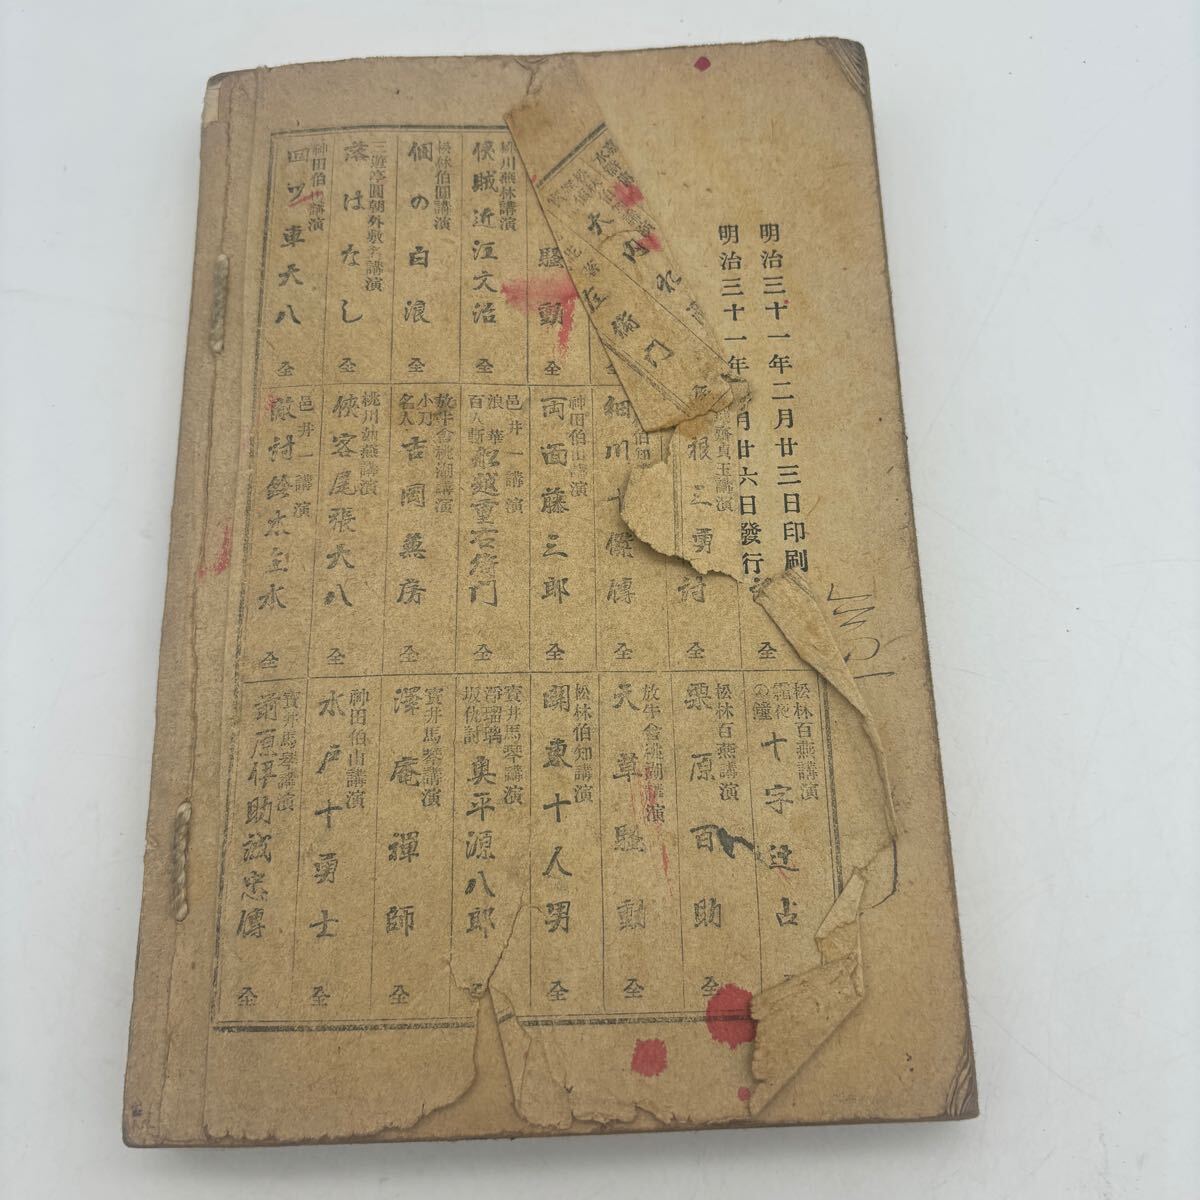 明治三十一年二月廿三日印刷
明治三十一年
月廿六日發行
水
大内
左衛門
騷動
桃川燕林講演
俠賊近江文治
全
松林伯圓講演
個の白浪
全
三遊亭圓朝外數名講演
落はなし
全
神田伯山講演
回ツ車大八
全
貞玉講演
根三勇討
全
細川十傑傳
全
神田伯山講演
両面藤三郎
全
邑井一講演
浪華百人斬
船越重右衛門
全
放牛舍桃湖講演
小刀名人
吉岡兼房
全
桃川如燕講演
俠客尾張大八
全
邑井一講演
敵討鈴木主水
全
松林百燕講演
霜夜の鐘
十字辻占
松林百燕講演
栗原百助
全
放牛舍桃湖講演
天草騷動
全
松林伯知講演
関東十人男
全
寳井馬琴講演
淨瑠璃坂仇討
奥平源八郎
全
寳井馬琴講演
澤庵禪師
全
神田伯山講演
水戸十勇士
全
寳井馬琴講演
萠原伊助誠忠傳
全